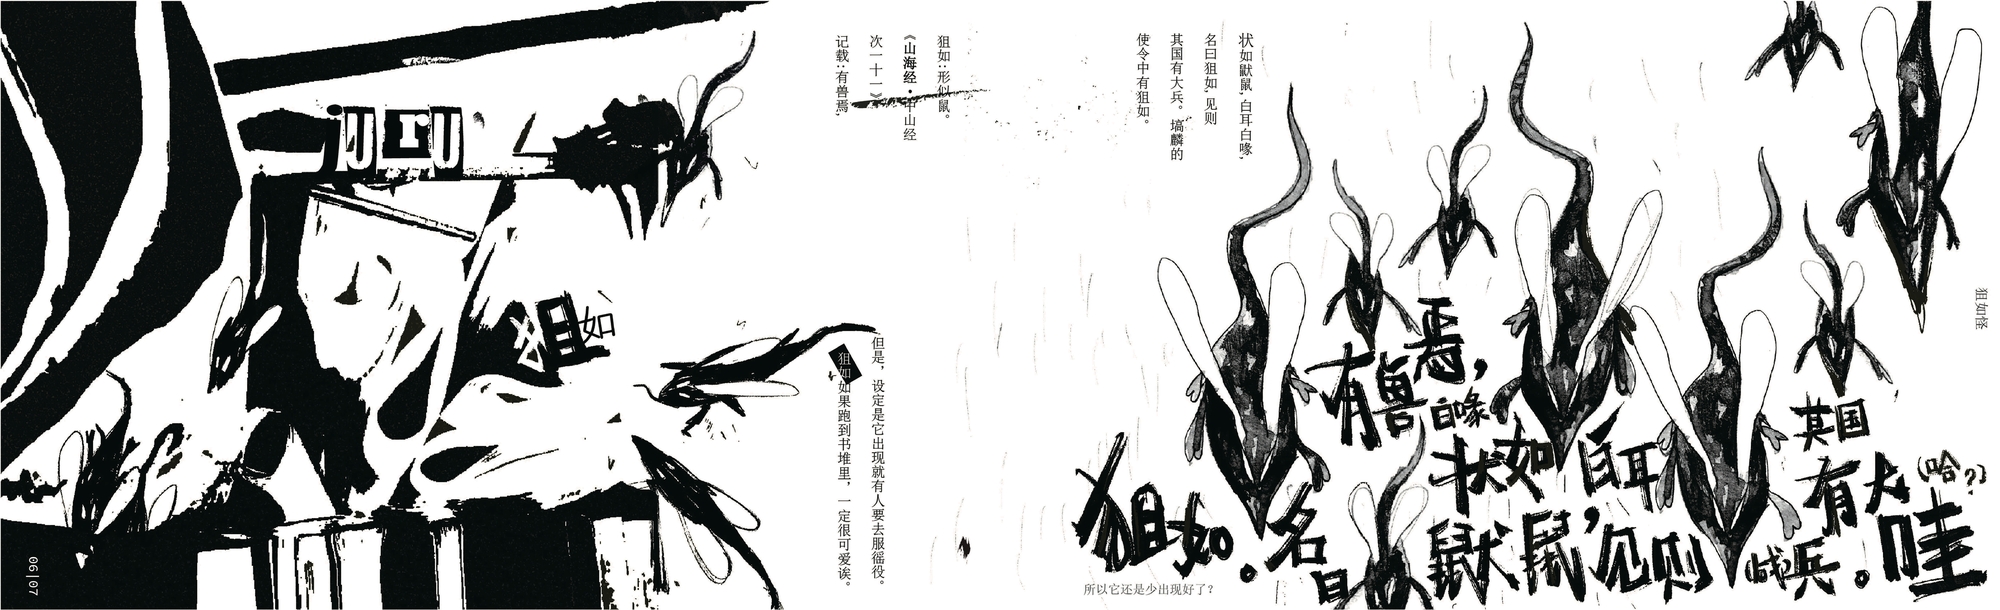 juru
狙如
狙如:形似鼠。
《山海经·中山经
次一十一》
记载:有兽焉,
但是,设定是它出现就有人要去服徭役。
狙如如果跑到书堆里,一定很可爱诶。
06|07
状如鼣鼠,白耳白喙,
名曰狙如,见则
其国有大兵。墙麟的
使令中有狙如。
有兽焉,
白喙
状如
白耳
狙如。名曰
鼣鼠,见则
其国
有大(哈?)
(战)兵。哇
所以它还是少出现好了?
狙如怪